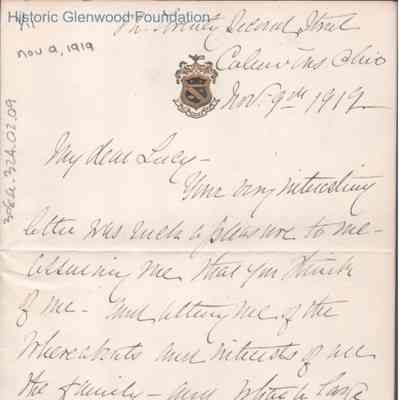 Historic Glenwood Foundation
nov 9, 1919
Twenty Second Street
Columbus, Ohio
Nov. 9th 1919
My dear Lucy -
Your very interesting
letter was such a pleasure to me -
assuring me that you think
of me - and telling me of the
whereabouts and interests of all
the family - and what a large